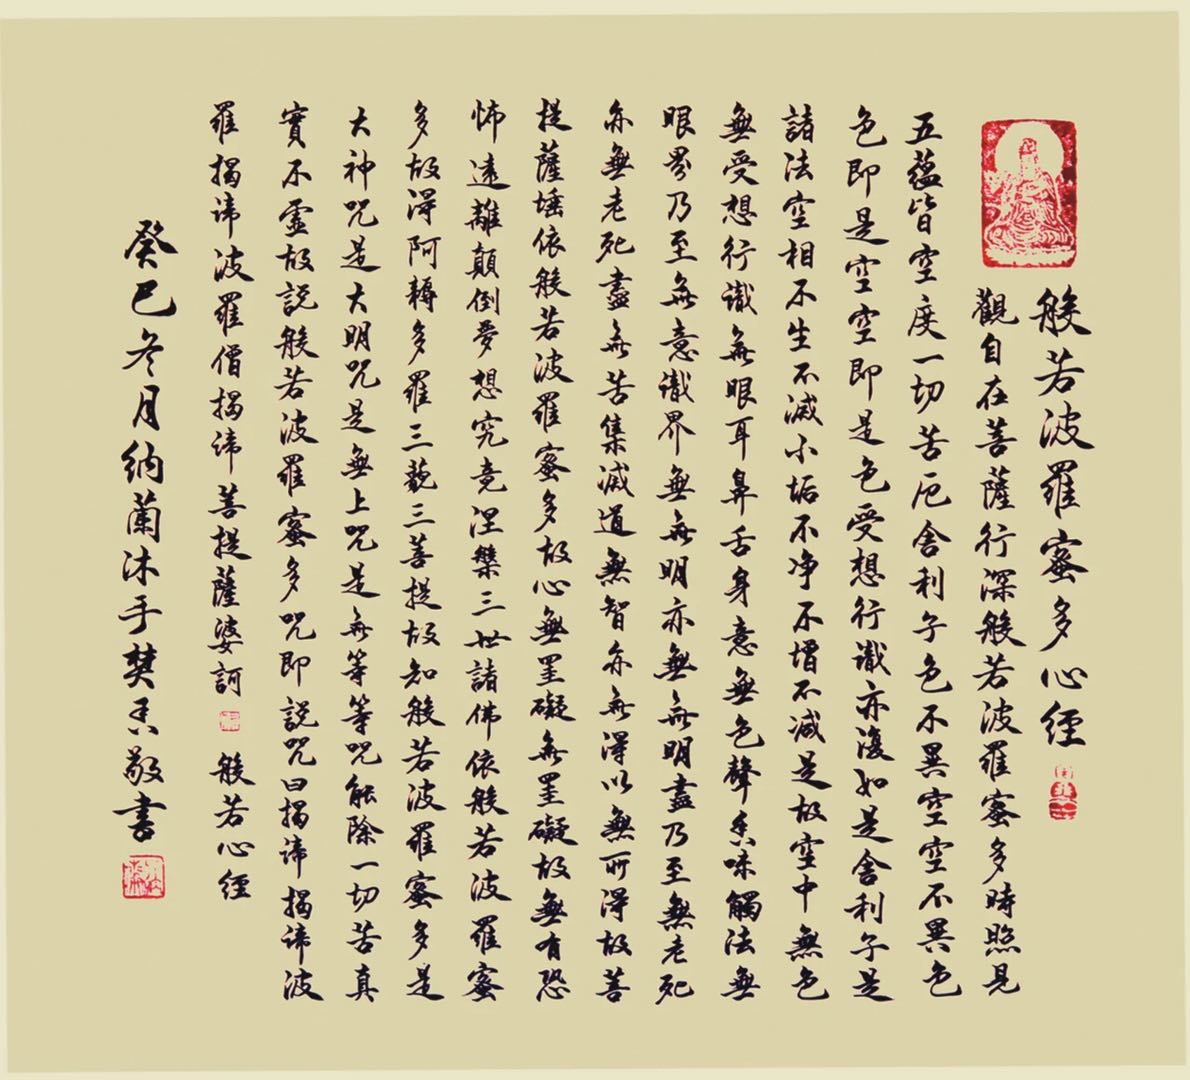 般若波羅蜜多心經
觀自在菩薩行深般若波羅蜜多時照見
五蘊皆空度一切苦厄舍利子色不異空空不異色
色即是空空即是色受想行識亦復如是舍利子是
諸法空相不生不滅不垢不净不增不減是故空中無色
無受想行識無眼耳鼻舌身意無色聲香味觸法無
眼界乃至無意識界無無明亦無無明盡乃至無老死
亦無老死盡無苦集滅道無智亦無得以無所得故菩
提薩埵依般若波羅蜜多故心無罣礙無罣礙故無有恐
怖遠離顛倒夢想究竟涅槃三世諸佛依般若波羅蜜
多故得阿耨多羅三藐三菩提故知般若波羅蜜多是
大神咒是大明咒是無上咒是無等等咒能除一切苦真
實不虛故說般若波羅蜜多咒即說咒曰揭諦揭諦波
羅揭諦波羅僧揭諦菩提薩婆訶 般若心經
癸巳冬月納蘭沐手焚香敬書